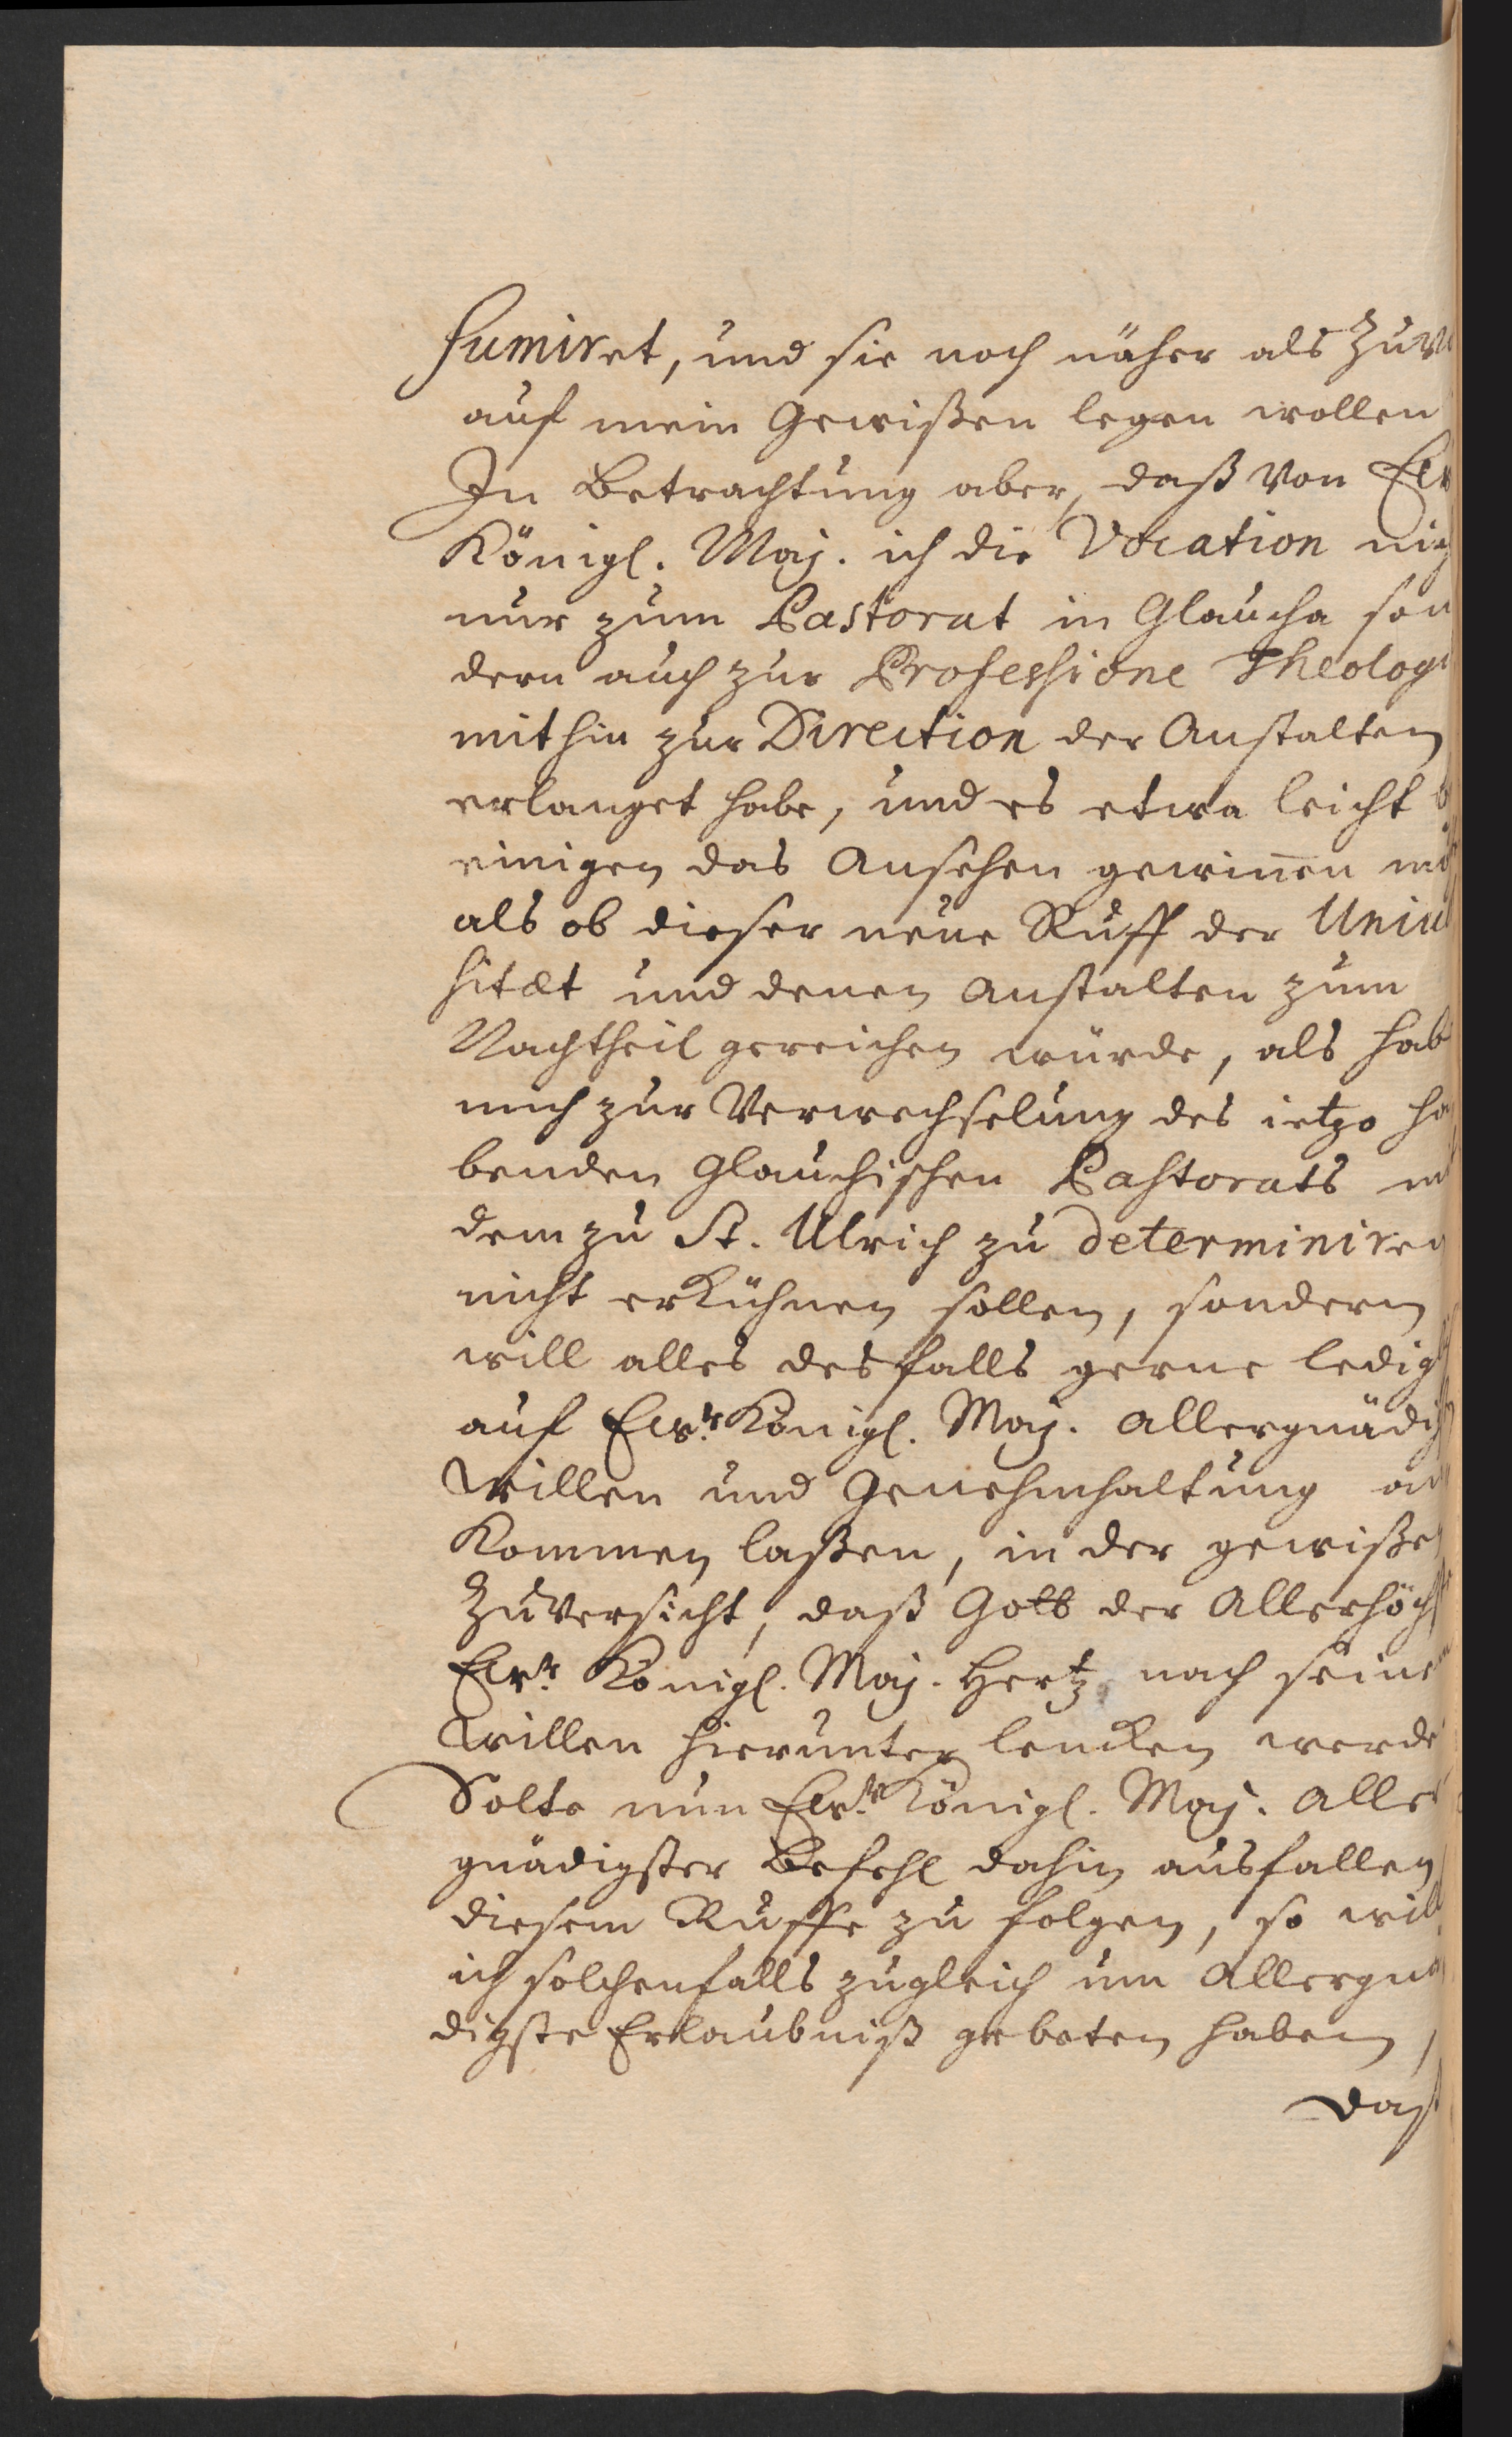 sumiret, und sie noch näher als zuv
auf mein Gewißen legen wollen
In Betrachtung aber, daß von Ew
Königl. Maj. ich die Vocation nich
nur zum Pastorat in Glaucha son
dern auch zur Professione Theologi
mithin zur Direction der Anstalten
erlanget habe, und es etwa leicht b
einigen das Ansehen gewiñen mö
als ob dieser neue Ruff der Univer
sitæt und denen Anstalten zum
Nachtheil gereichen würde, als hab
mich zur Verwechselung des ietzo ha
benden Glauchischen Pastorats m
dem zu St. Ulrich zu determiniren
nicht erkühnen sollen, sondern
will alles desfalls gerne ledigl
auf Ewr. Königl. Maj. Allergnädigst
Willen und Genehmhaltung an
kommen laßen, in der gewißen
Zuversicht, daß Gott der Allerhöchste
Ewr. Königl. Maj. Hertz nach seinem
Willen hierunter lencken werde
Solte nun Ewr. Königl. Maj. Aller
gnädigster Befehl dahin ausfallen
diesem Ruffe zu folgen, so will
ich solchenfalls zugleich um Allergnä
digste Erlaubniß gebeten haben,
daß